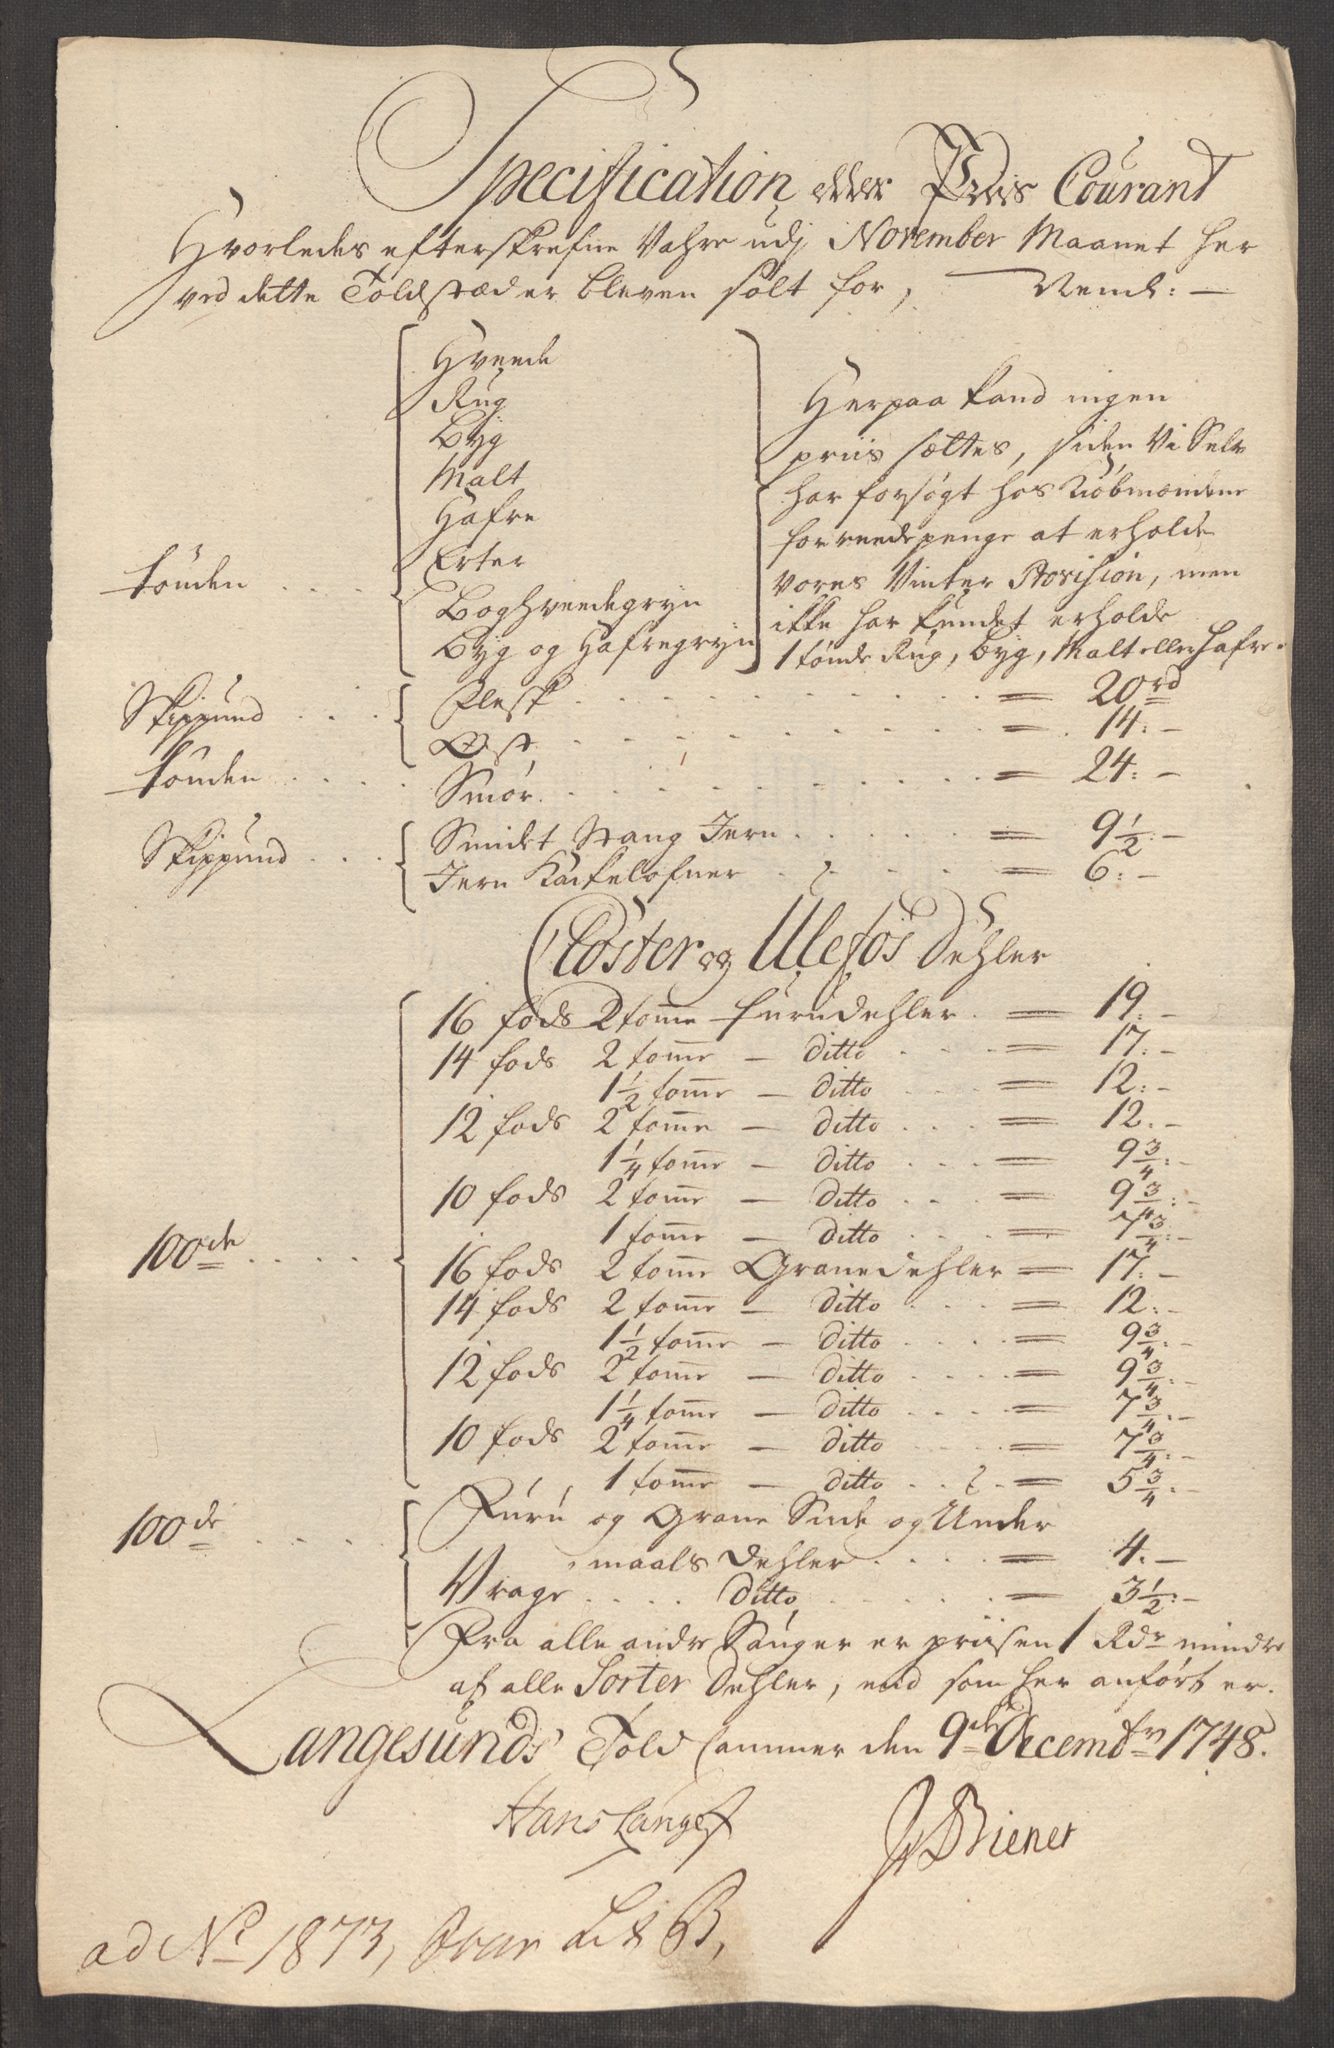 Specification eller Priis Courant
Hvorledes efterskrefne Vahre udj November Maanet her
ved dette Toldstæd er bleven solt for, Neml: —
tønden . . . .
Hveede
Rug
Byg
Malt
Hafre
Erter
Boghveedegryn
Byg og Hafregryn
Herpaa kand ingen
priis sættes, siden Vi Selv
har forsøgt hos Kiøbmændene
for reede penge at erholde
vores Vinter Provision, men
ikke har kundet erholde
1 tønde Rug, Byg, Malt eller Hafre.
Skippund . . . Flesk . . . = 20 rd
Ost . . . = 14: —
tønden . . . Smør . . . = 24: —
Skippund . . . Smidet Stang Jern . . . = 9 1/2: —
Jern Kackelofner . . . = 6: —
Closter og Ulefos Dehler
100de . . . .
16 fods 2 tome furudehler . = 19: —
14 fods 2 tome — ditto . . . = 17: —
1 1/2 tome — ditto . . . = 12: —
12 fods 2 tome — ditto . . . = 12: —
1 1/4 tome — ditto . . . = 9 3/4: —
10 fods 2 tome — ditto . . . = 9 3/4: —
1 tome — ditto . . . = 7 3/4: —
16 fods 2 tome Granedehler = 17: —
14 fods 2 tome — ditto . . . = 12: —
1 1/2 tome — ditto . . . = 9 3/4: —
12 fods 2 tome — ditto . . . = 9 3/4: —
1 1/4 tome — ditto . . . = 7 3/4: —
10 fods 2 tome — ditto . . . = 7 3/4: —
1 tome — ditto . . . = 5 3/4: —
100de . . . . Furu og Grane Smde og Under
maals dehler . . . = 4: —
Vrage . . . . ditto . . . = 3 1/2: —
Fra alle andre Sauger er priisen 1 Rdr mindre
af alle Sorter Dehler, end som her anført er.
Langesunds Told Cammer den 9de Decembr 1748.
Hans Lange
Briener
ad No 1873, Lit B,